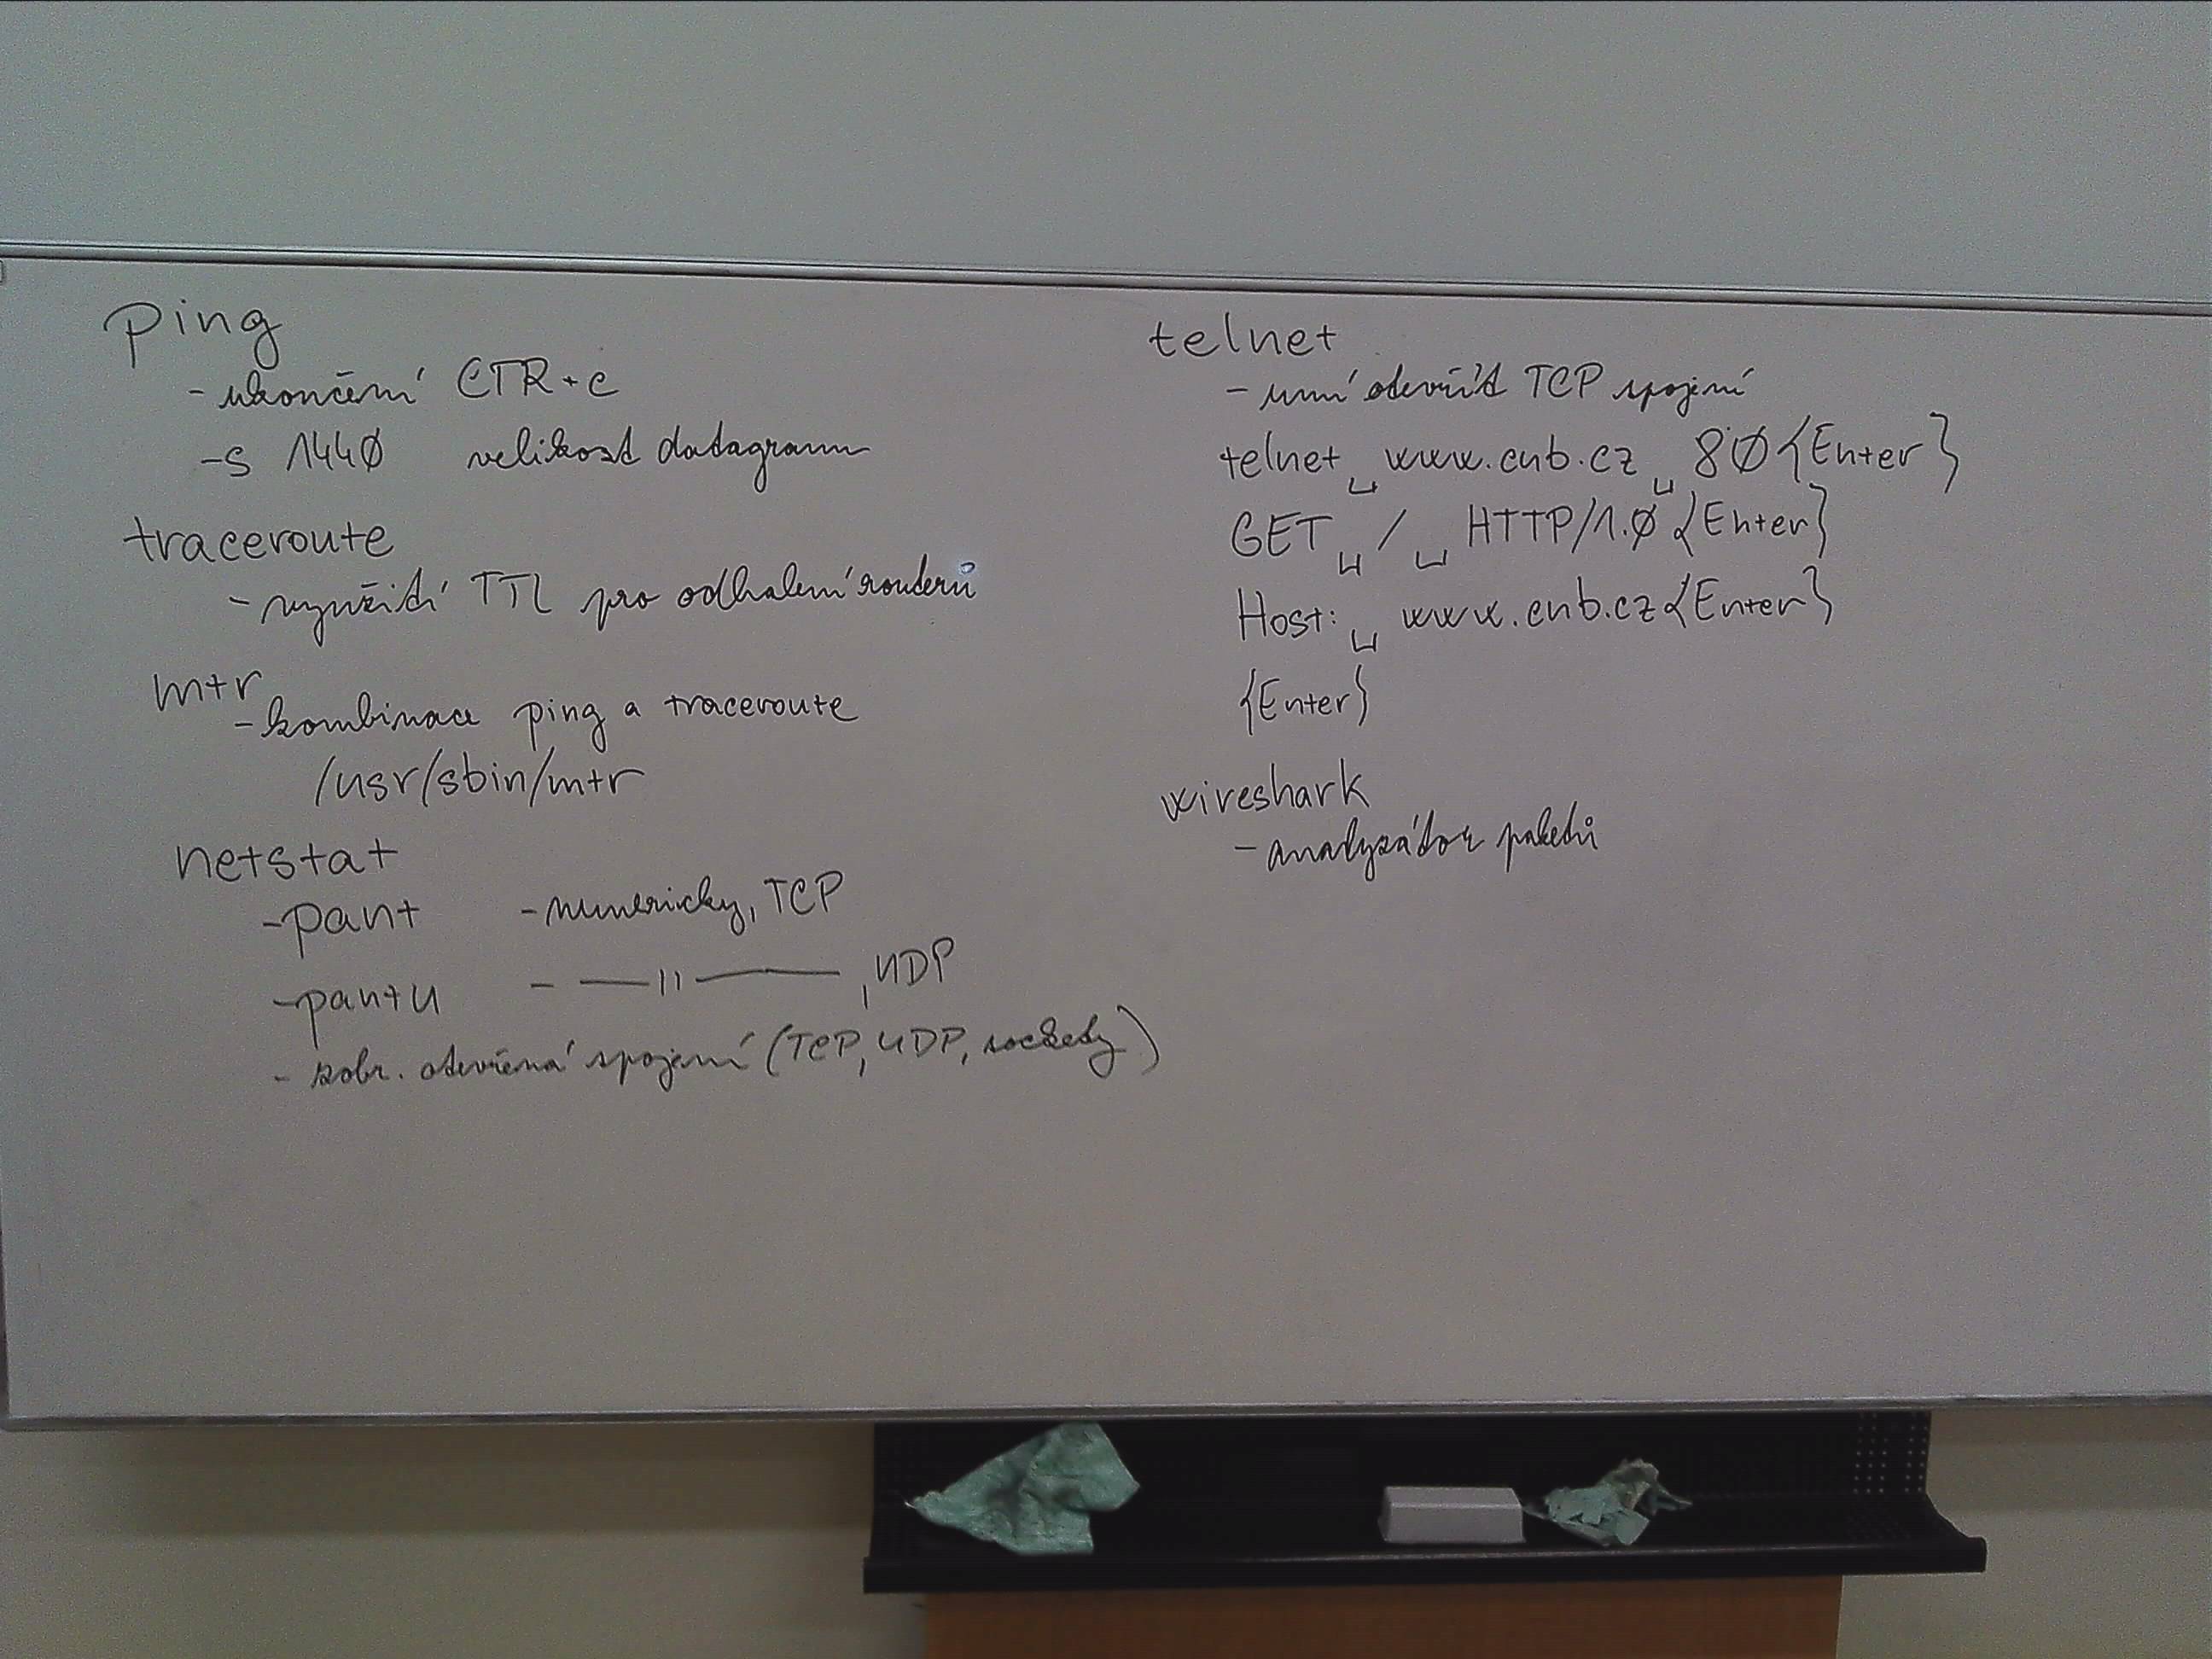 ping
- ukončení CTR+c
-s 144Ø velikost datagramu
traceroute
- využití TTL pro odhalení routerů
mtr
- kombinace ping a traceroute
/usr/sbin/mtr
netstat
-pant - numericky, TCP
-pantu - —— 11 ——, UDP
- zobr. otevřená spojení (TCP, UDP, sockety)
telnet
- umí otevřít TCP spojení
telnet␣www.cnb.cz␣8Ø{Enter}
GET␣/␣HTTP/1.Ø{Enter}
Host:␣www.cnb.cz{Enter}
{Enter}
wireshark
- analyzátor paketů